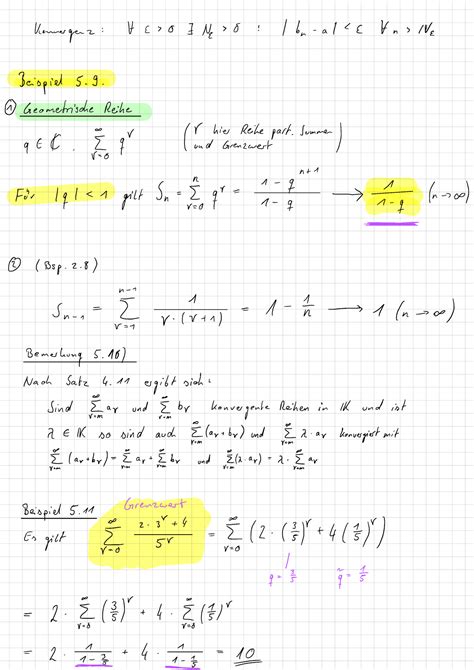 Konvergenz: ∀ ε > 0 ∃ Nε > 0 : |bn - a| < ε ∀ n > Nε
Beispiel 5.9.
① Geometrische Reihe
q ∈ ℂ. ∑_{ν=0}^{∞} q^ν (ν hier Reihe part. Summen und Grenzwert)
Für |q| < 1 gilt Sn = ∑_{ν=0}^{n} q^ν = (1 - q^{n+1})/(1 - q) → 1/(1 - q) (n → ∞)
② (Bsp. 2.8)
S_{n-1} = ∑_{ν=1}^{n-1} 1/(ν·(ν+1)) = 1 - 1/n → 1 (n → ∞)
Bemerkung 5.10)
Nach Satz 4.11 ergibt sich:
Sind ∑_{ν=m}^{∞} aν und ∑_{ν=m}^{∞} bν konvergente Reihen in IK und ist
λ ∈ IK so sind auch ∑_{ν=m}^{∞} (aν+bν) und ∑_{ν=m}^{∞} λ·aν konvergiert mit
∑_{ν=m}^{∞} (aν+bν) = ∑_{ν=m}^{∞} aν + ∑_{ν=m}^{∞} bν und ∑_{ν=m}^{∞} (λ·aν) = λ·∑_{ν=m}^{∞} aν
Beispiel 5.11
Grenzwert
Es gilt ∑_{ν=0}^{∞} (2·3^ν + 4)/5^ν = ∑_{ν=0}^{∞} (2·(3/5)^ν + 4(1/5)^ν)
q = 3/5 q̃ = 1/5
= 2·∑_{ν=0}^{∞} (3/5)^ν + 4·∑_{ν=0}^{∞} (1/5)^ν
= 2·1/(1 - 3/5) + 4·1/(1 - 1/5) = 10